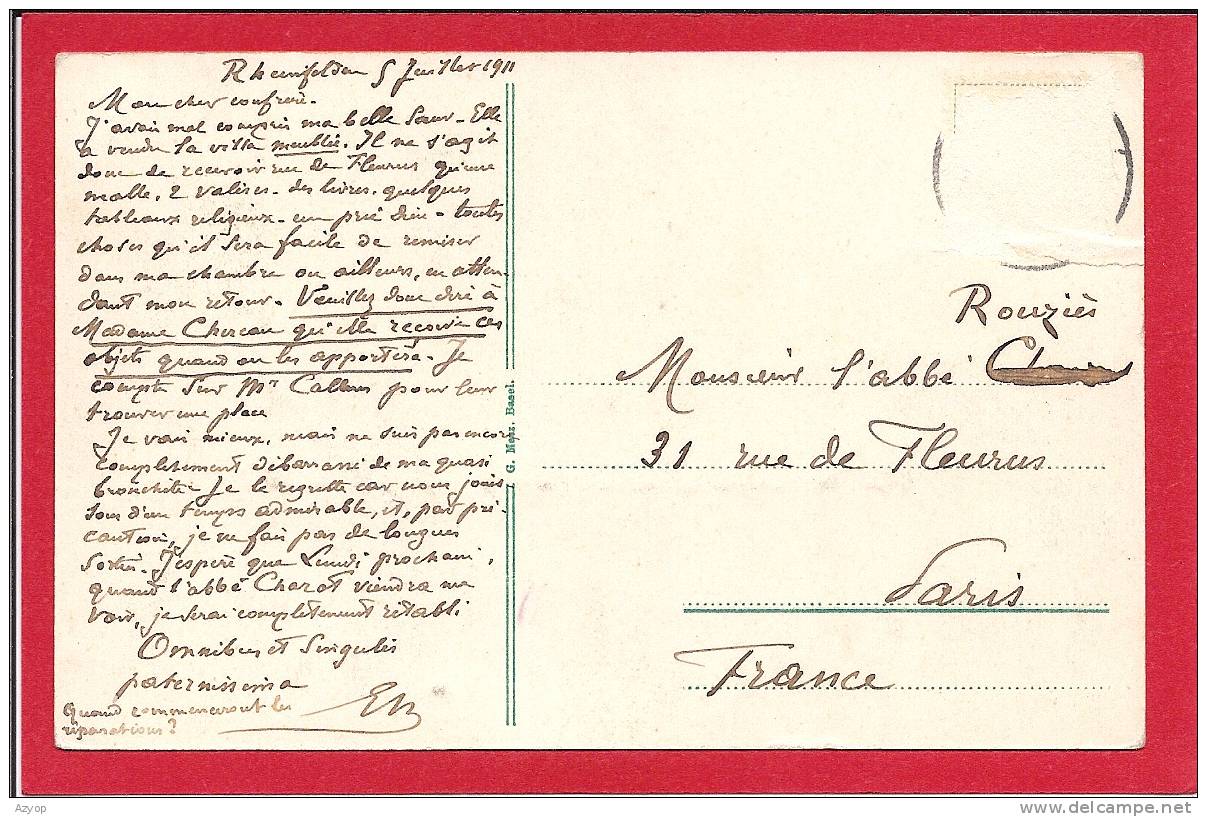 Rheinfelden 5 Juillet 1911
Mon cher confrère.
J'avais mal compris ma belle Sœur. Elle
a vendu sa villa meublée. Il ne s'agit
donc de recevoir rue de Fleurus qu'une
malle, 2 valises. des livres. quelques
tableaux religieux. un prié dieu. toutes
choses qu'il sera facile de remiser
dans ma chambre ou ailleurs, en atten-
dant mon retour. Veuillez donc dire à
Madame Chereau qu'elle reçoive ces
objets quand on les apportera. Je
compte sur Mr pour leur
trouver une place
Je vais mieux, mais ne suis pas encore
complètement débarrassé de ma quasi
bronchite. Je le regrette car nous jouis
sons d'un temps admirable, et, par pré-
caution, je ne fais pas de longues
sorties. J'espère que Lundi prochain,
quand l'abbé Charot viendra me
voir, je serai complètement rétabli
Omnibus et Singulis
paternissima
Quand commenceront les
réparations?
G. Metz, Basel.
Rouziès
Monsieur l'abbé
31 rue de Fleurus
Paris
France
Azyop
www.delcampe.net